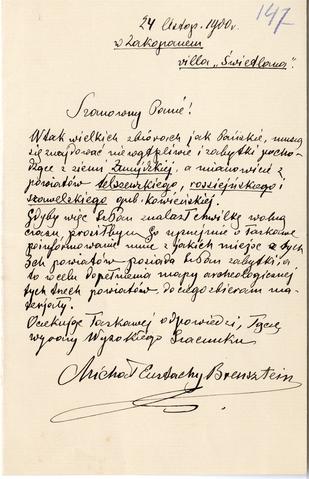 147
24 listop. 1900 r.
w Zakopanem
villa „Świetlana”.
Szanowny Panie!
W tak wielkich zbiorach jak Pańskie, muszą
się znajdować niewątpliwie i zabytki pocho-
dzące z ziemi Żmujdzkiej, a mianowicie z
powiatów telszewskiego, rossieńskiego i
szawelskiego gub. kowieńskiej.
Gdyby więc WPan znalazł chwilkę wolną
czasu, prosiłbym Go uprzejmie o łaskawe
poinformowanie mnie z jakich miejsc z tych
3ch powiatów posiada WPan zabytki, a
to w celu dopełnienia mapy archeologicznej
tych trzech powiatów, do czego zbieram ma-
terjały.
Oczekując łaskawej odpowiedzi, łączę
wyrazy Wysokiego Szacunku
Michał Eustachy Brensztein